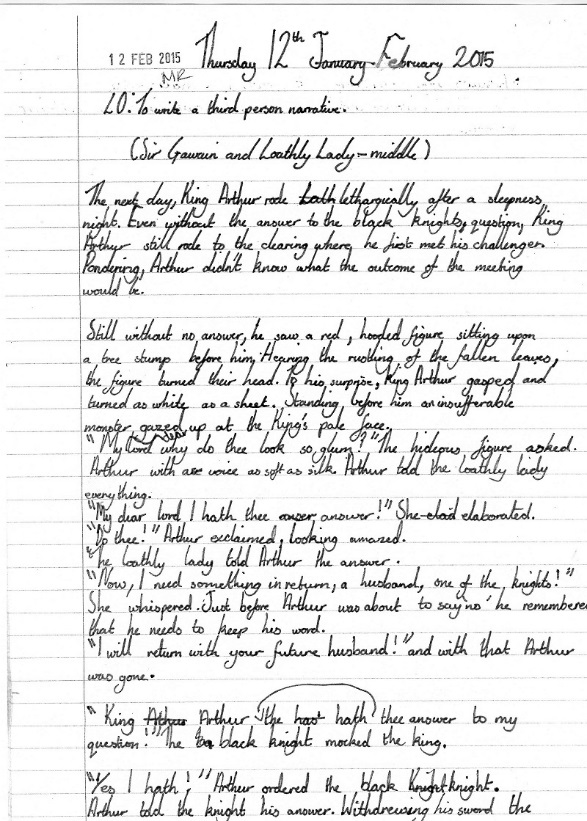 12 FEB 2015
MR
Thursday 12th January-February 2015
LO: To write a third person narrative.
(Sir Gawain and Loathly Lady-middle)
The next day, King Arthur rode lath lethargically after a sleepness
night. Even without the answer to the black knights, question, King
Arthur still rode to the clearing where he first met his challenger.
Pondering, Arthur didn't know what the outcome of the meeting
would be.
Still without no answer, he saw a red, hooded figure sitting upon
a tree stump before him. Hearing the rustling of the fallen leaves,
the figure turned their head. To his surprise, King Arthur gasped and
turned as white as a sheet. Standing before him an insufferable
monster gazed up at the King's pale face.
"My lord dear why do thee look so glum?" The hideous figure asked.
Arthur with a voice as soft as silk Arthur told the loathly lady
everything.
"My dear lord I hath thee answer!" She elaborated.
"Do thee!" Arthur exclaimed, looking amazed.
The loathly lady told Arthur the answer.
"Now, I need something in return, a husband, one of the knights!"
She whispered. Just before Arthur was about to say 'no' he remembered
that he needs to keep his word.
"I will return with your future husband!" and with that Arthur
was gone.
"King Arthur Arthur the hast hath thee answer to my
question!" The black knight mocked the king.
"Yes I hath!" Arthur ordered the black Knight knight.
Arthur told the knight his answer. Withdrewing his sword the